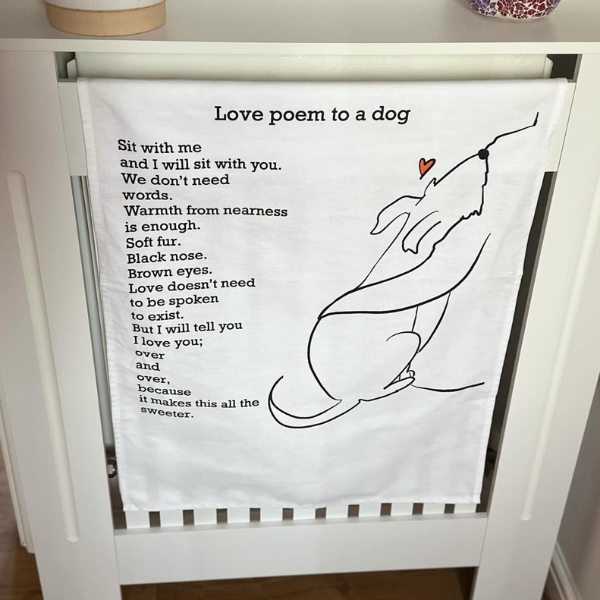 Love poem to a dog
Sit with me
and I will sit with you.
We don't need
words.
Warmth from nearness
is enough.
Soft fur.
Black nose.
Brown eyes.
Love doesn't need
to be spoken
to exist.
But I will tell you
I love you;
over
and
over,
because
it makes this all the
sweeter.